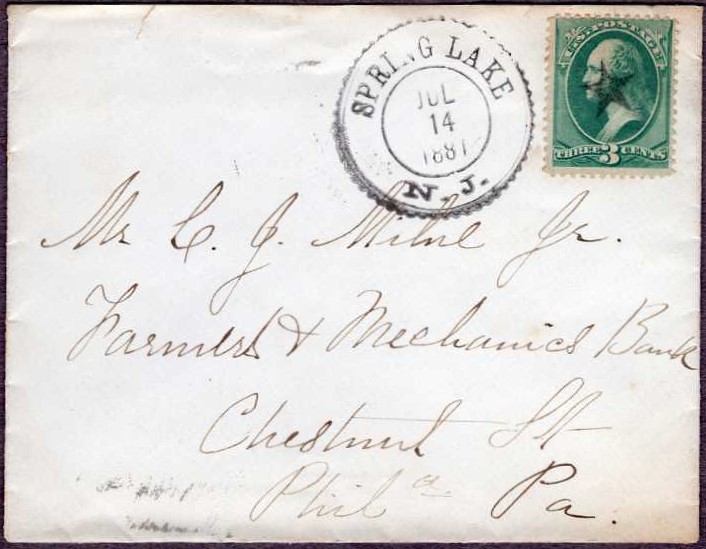 SPRING LAKE
JUL
14
1881
N. J.
U.S. POSTAGE
THREE 3 CENTS
Mr C. J. Milne Jr.
Farmers & Mechanics Bank
Chestnut St
Phila Pa.